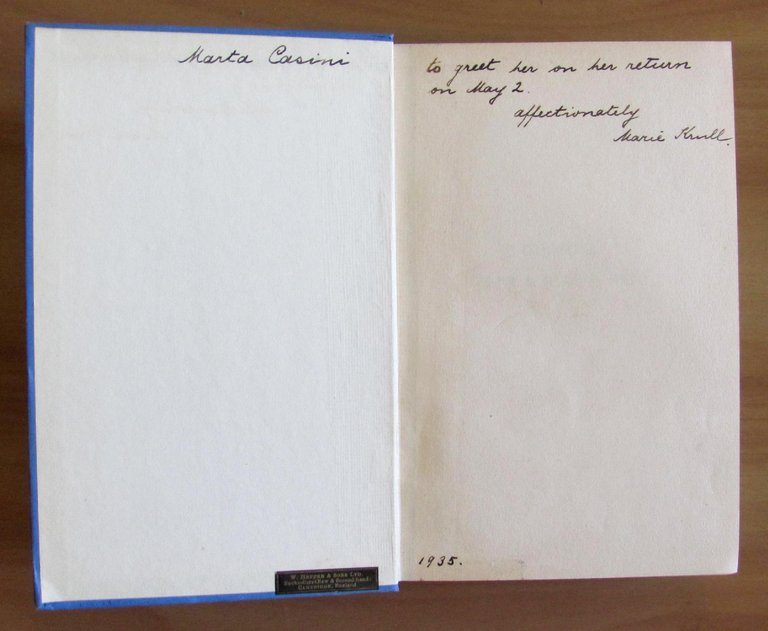 Marta Casini
to greet her on her return
on May 2.
affectionately
Marie Krull.
1935.
W. HEFFER & SONS LTD.
Booksellers (New & Second-hand)
CAMBRIDGE, England